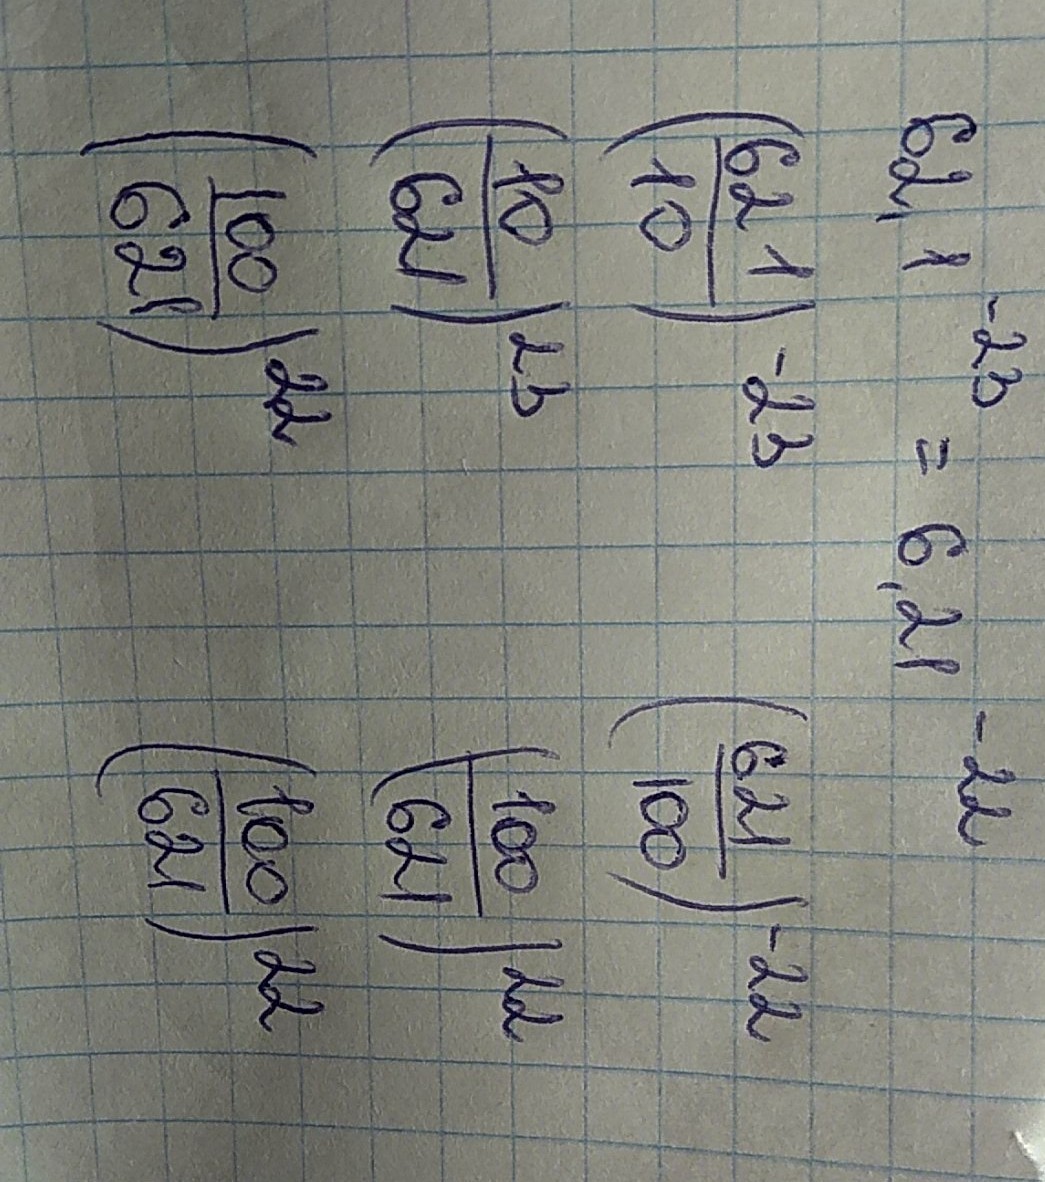 62,1^-23 = 6,21^-22
(621/10)^-23 (621/100)^-22
(10/621)^23 (100/621)^22
(100/621)^22 (100/621)^22